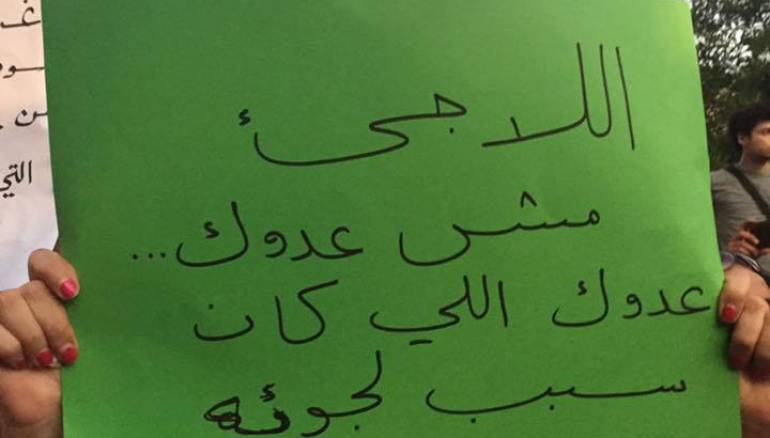 اللاجئ
مش عدوك...
عدوك اللي كان
سبب لجوئه
التي